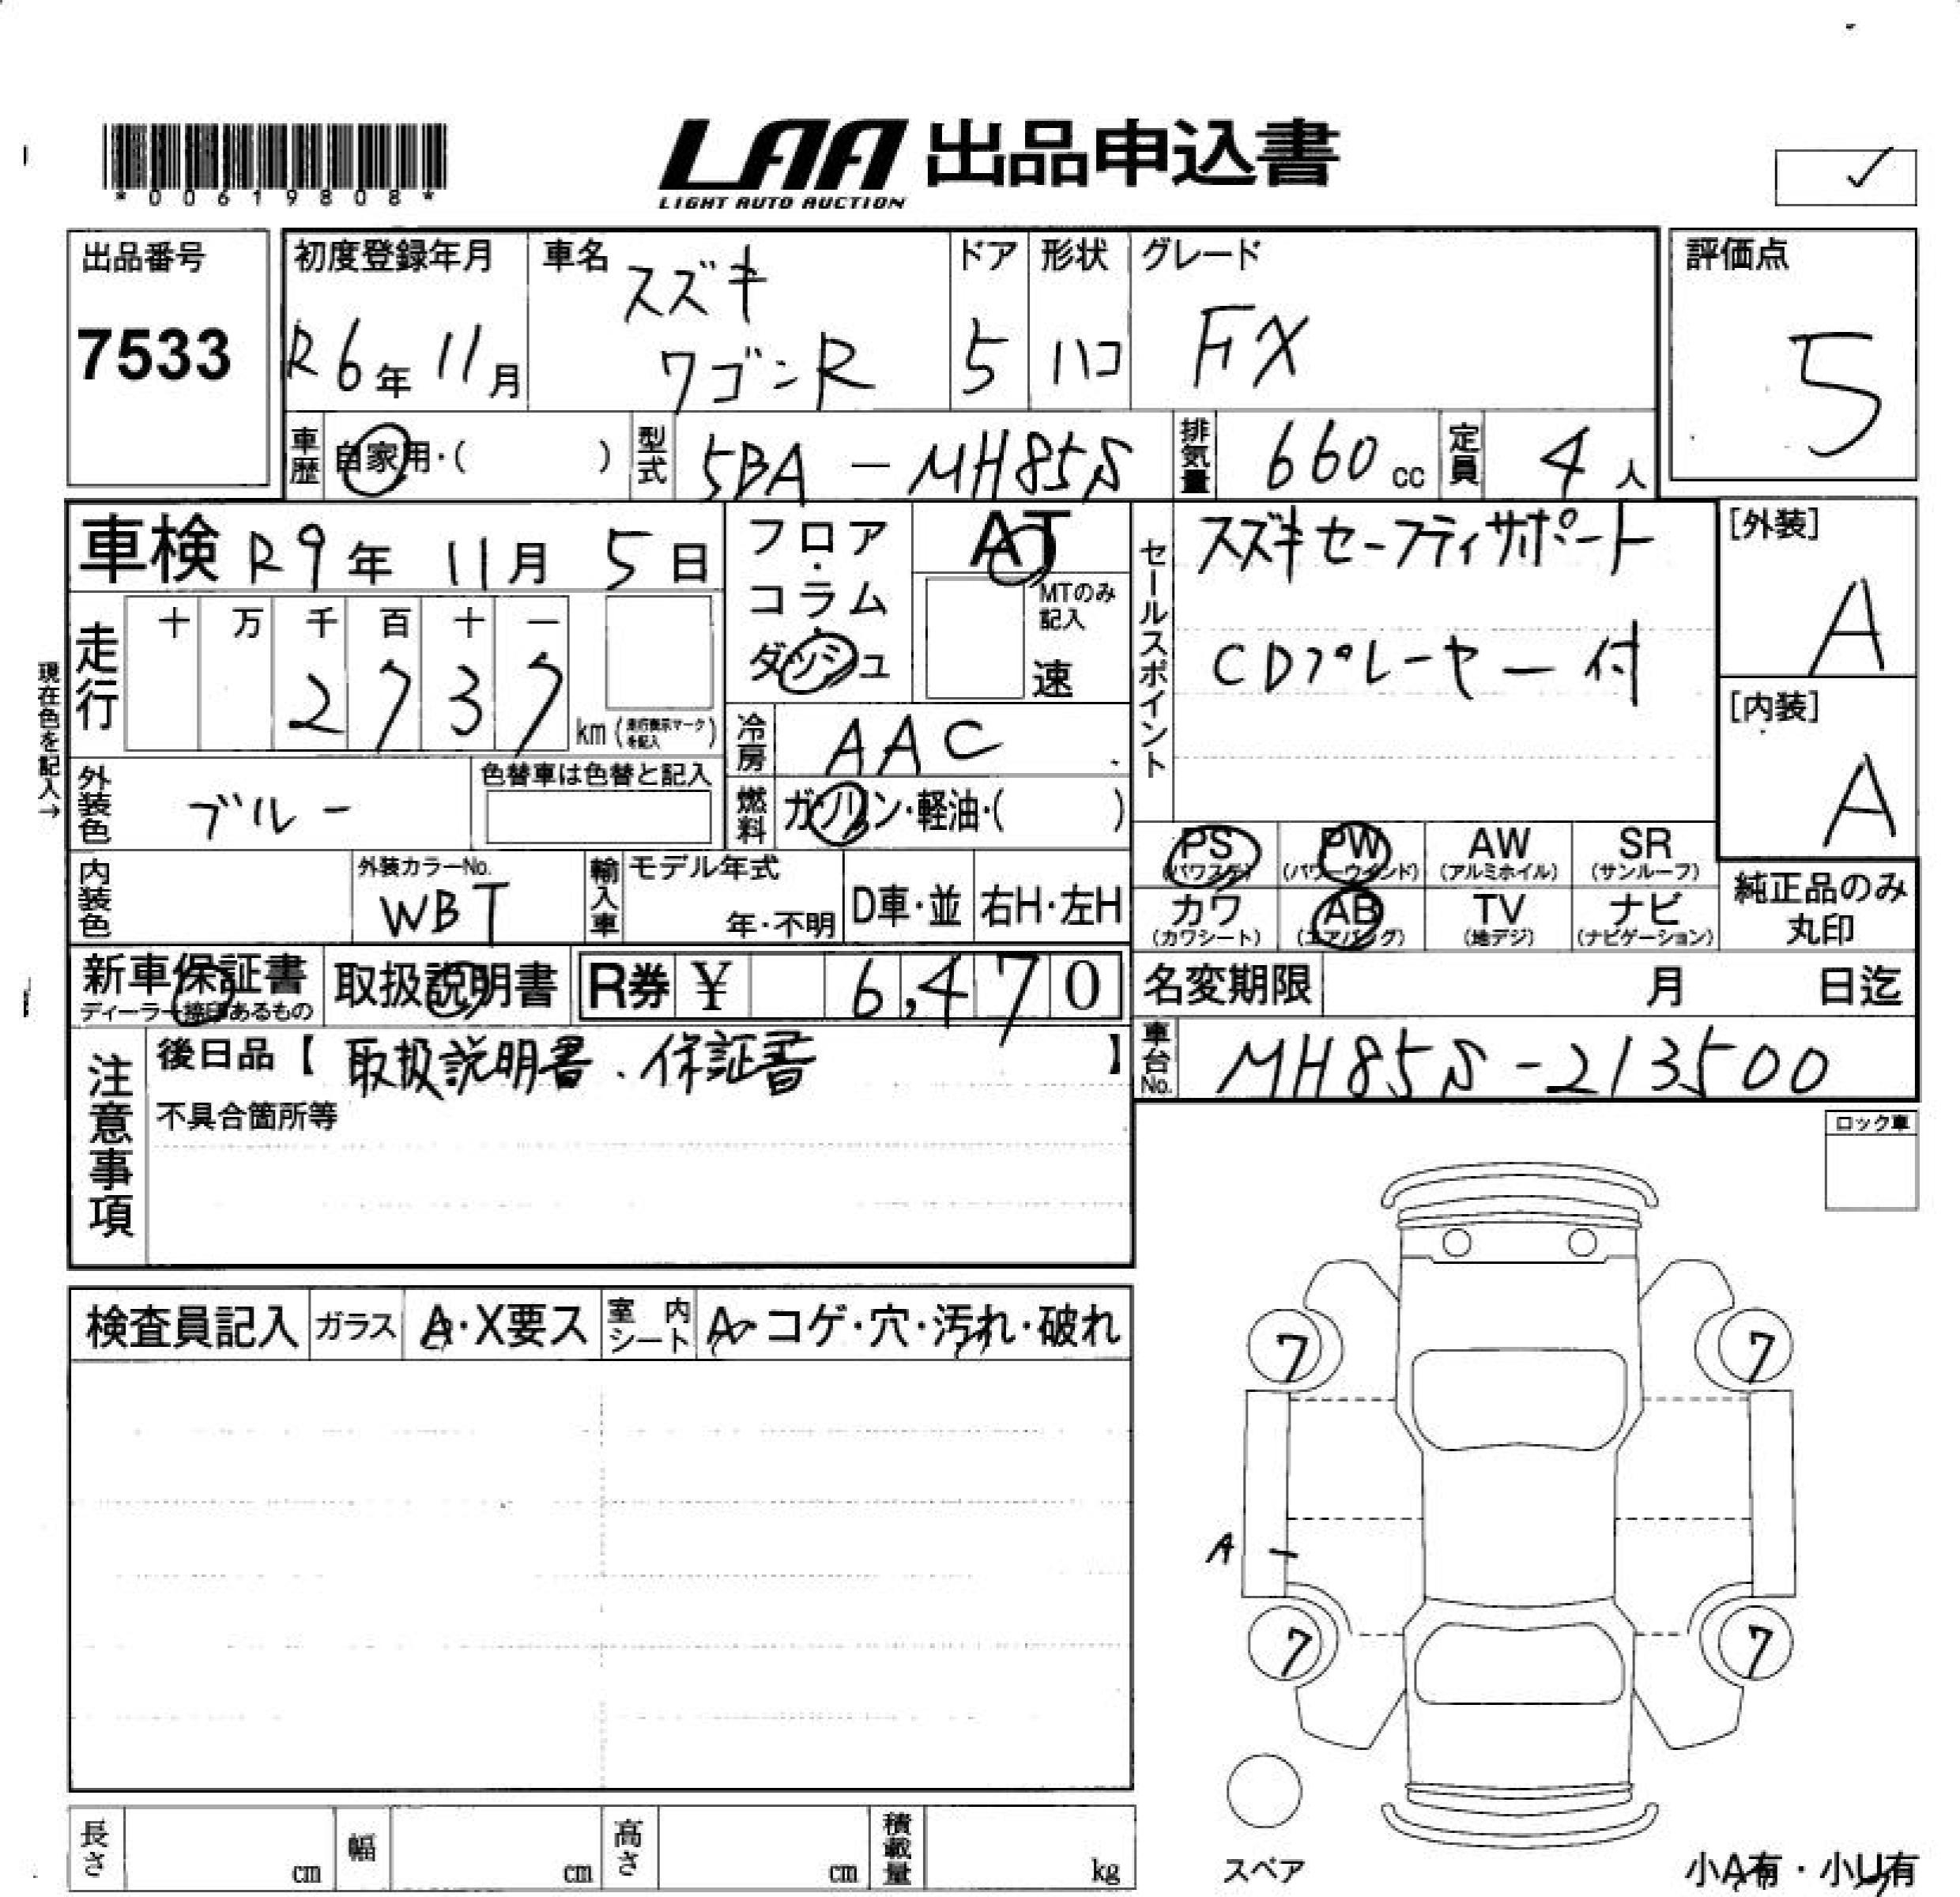 *00619808*
LAA 出品申込書
LIGHT AUTO AUCTION
出品番号 7533
初度登録年月 R6年 11月
車名 スズキ ワゴンR
ドア 5
形状 ハコ
グレード FX
評価点 5
車歴 自家用・( )
型式 5BA-MH85S
排気量 660 cc
定員 4 人
車検 R9年 11月 5日
フロア・コラム・ダッシュ
AT
MTのみ記入
速
セールスポイント
スズキセーフティサポート
CDプレーヤー付
[外装] A
[内装] A
現在色を記入→
走行 十 万 千 百 十 一
2 7 3 7 km (走行表示マークを記入)
冷房 AAC
燃料 ガソリン・軽油・( )
外装色 ブルー
色替車は色替と記入
内装色
外装カラーNo. WBT
輸入車
モデル年式 年・不明
D車・並
右H・左H
PS (パワステ)
PW (パワーウインド)
AW (アルミホイル)
SR (サンルーフ)
カワ (カワシート)
AB (エアバッグ)
TV (地デジ)
ナビ (ナビゲーション)
純正品のみ丸印
新車保証書
ディーラー捺印あるもの
取扱説明書
R券 ¥ 6,470
名変期限 月 日迄
注意事項
後日品【 取扱説明書、保証書 】
不具合箇所等
車台No. MH85S-213500
ロック車
検査員記入
ガラス A・X要ス
室内シート A・コゲ・穴・汚れ・破れ
7
7
A
7
7
スペア
小A有・小U有
長さ cm
幅 cm
高さ cm
積載量 kg